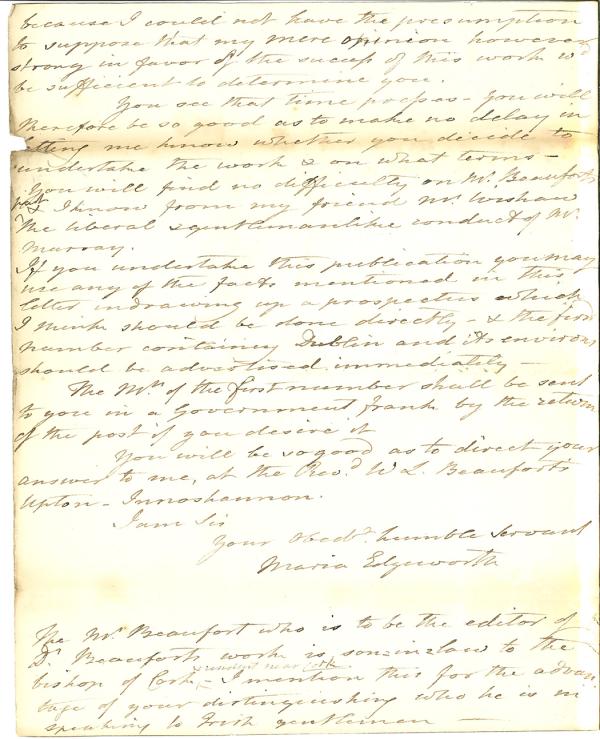 because I could not have the presumption
to suppose that my mere opinion however
strong in favor of the success of this work wd
be sufficient to determine you.
You see that time presses - You will
therefore be so good as to make no delay in
letting me know whether you decide to
undertake the work & on what terms -
You will find no difficulty on Mr. Beaufort's
part & I know from my friend Mr. Wishaw
the liberal & gentlemanlike conduct of Mr.
Murray.
If you undertake this publication you may
use any of the facts mentioned in this
letter in drawing up a prospectus which
I think should be done directly - & the first
number containing Dublin and its environs
should be advertised immediately -
The Mss of the first number shall be sent
to you in a Government frank by the return
of the post if you desire it
You will be so good as to direct your
answer to me, at the Revd. W L. Beaufort's
Upton - Innoshannon.
I am Sir
Your Obedt. humble Servant
Maria Edgeworth
The Mr. Beaufort who is to be the editor of
Dr. Beaufort's work is son-in-law to the
& resident near Cork
bishop of Cork - I mention this for the advan
tage of your distinguishing who he is in
speaking to Irish gentlemen -